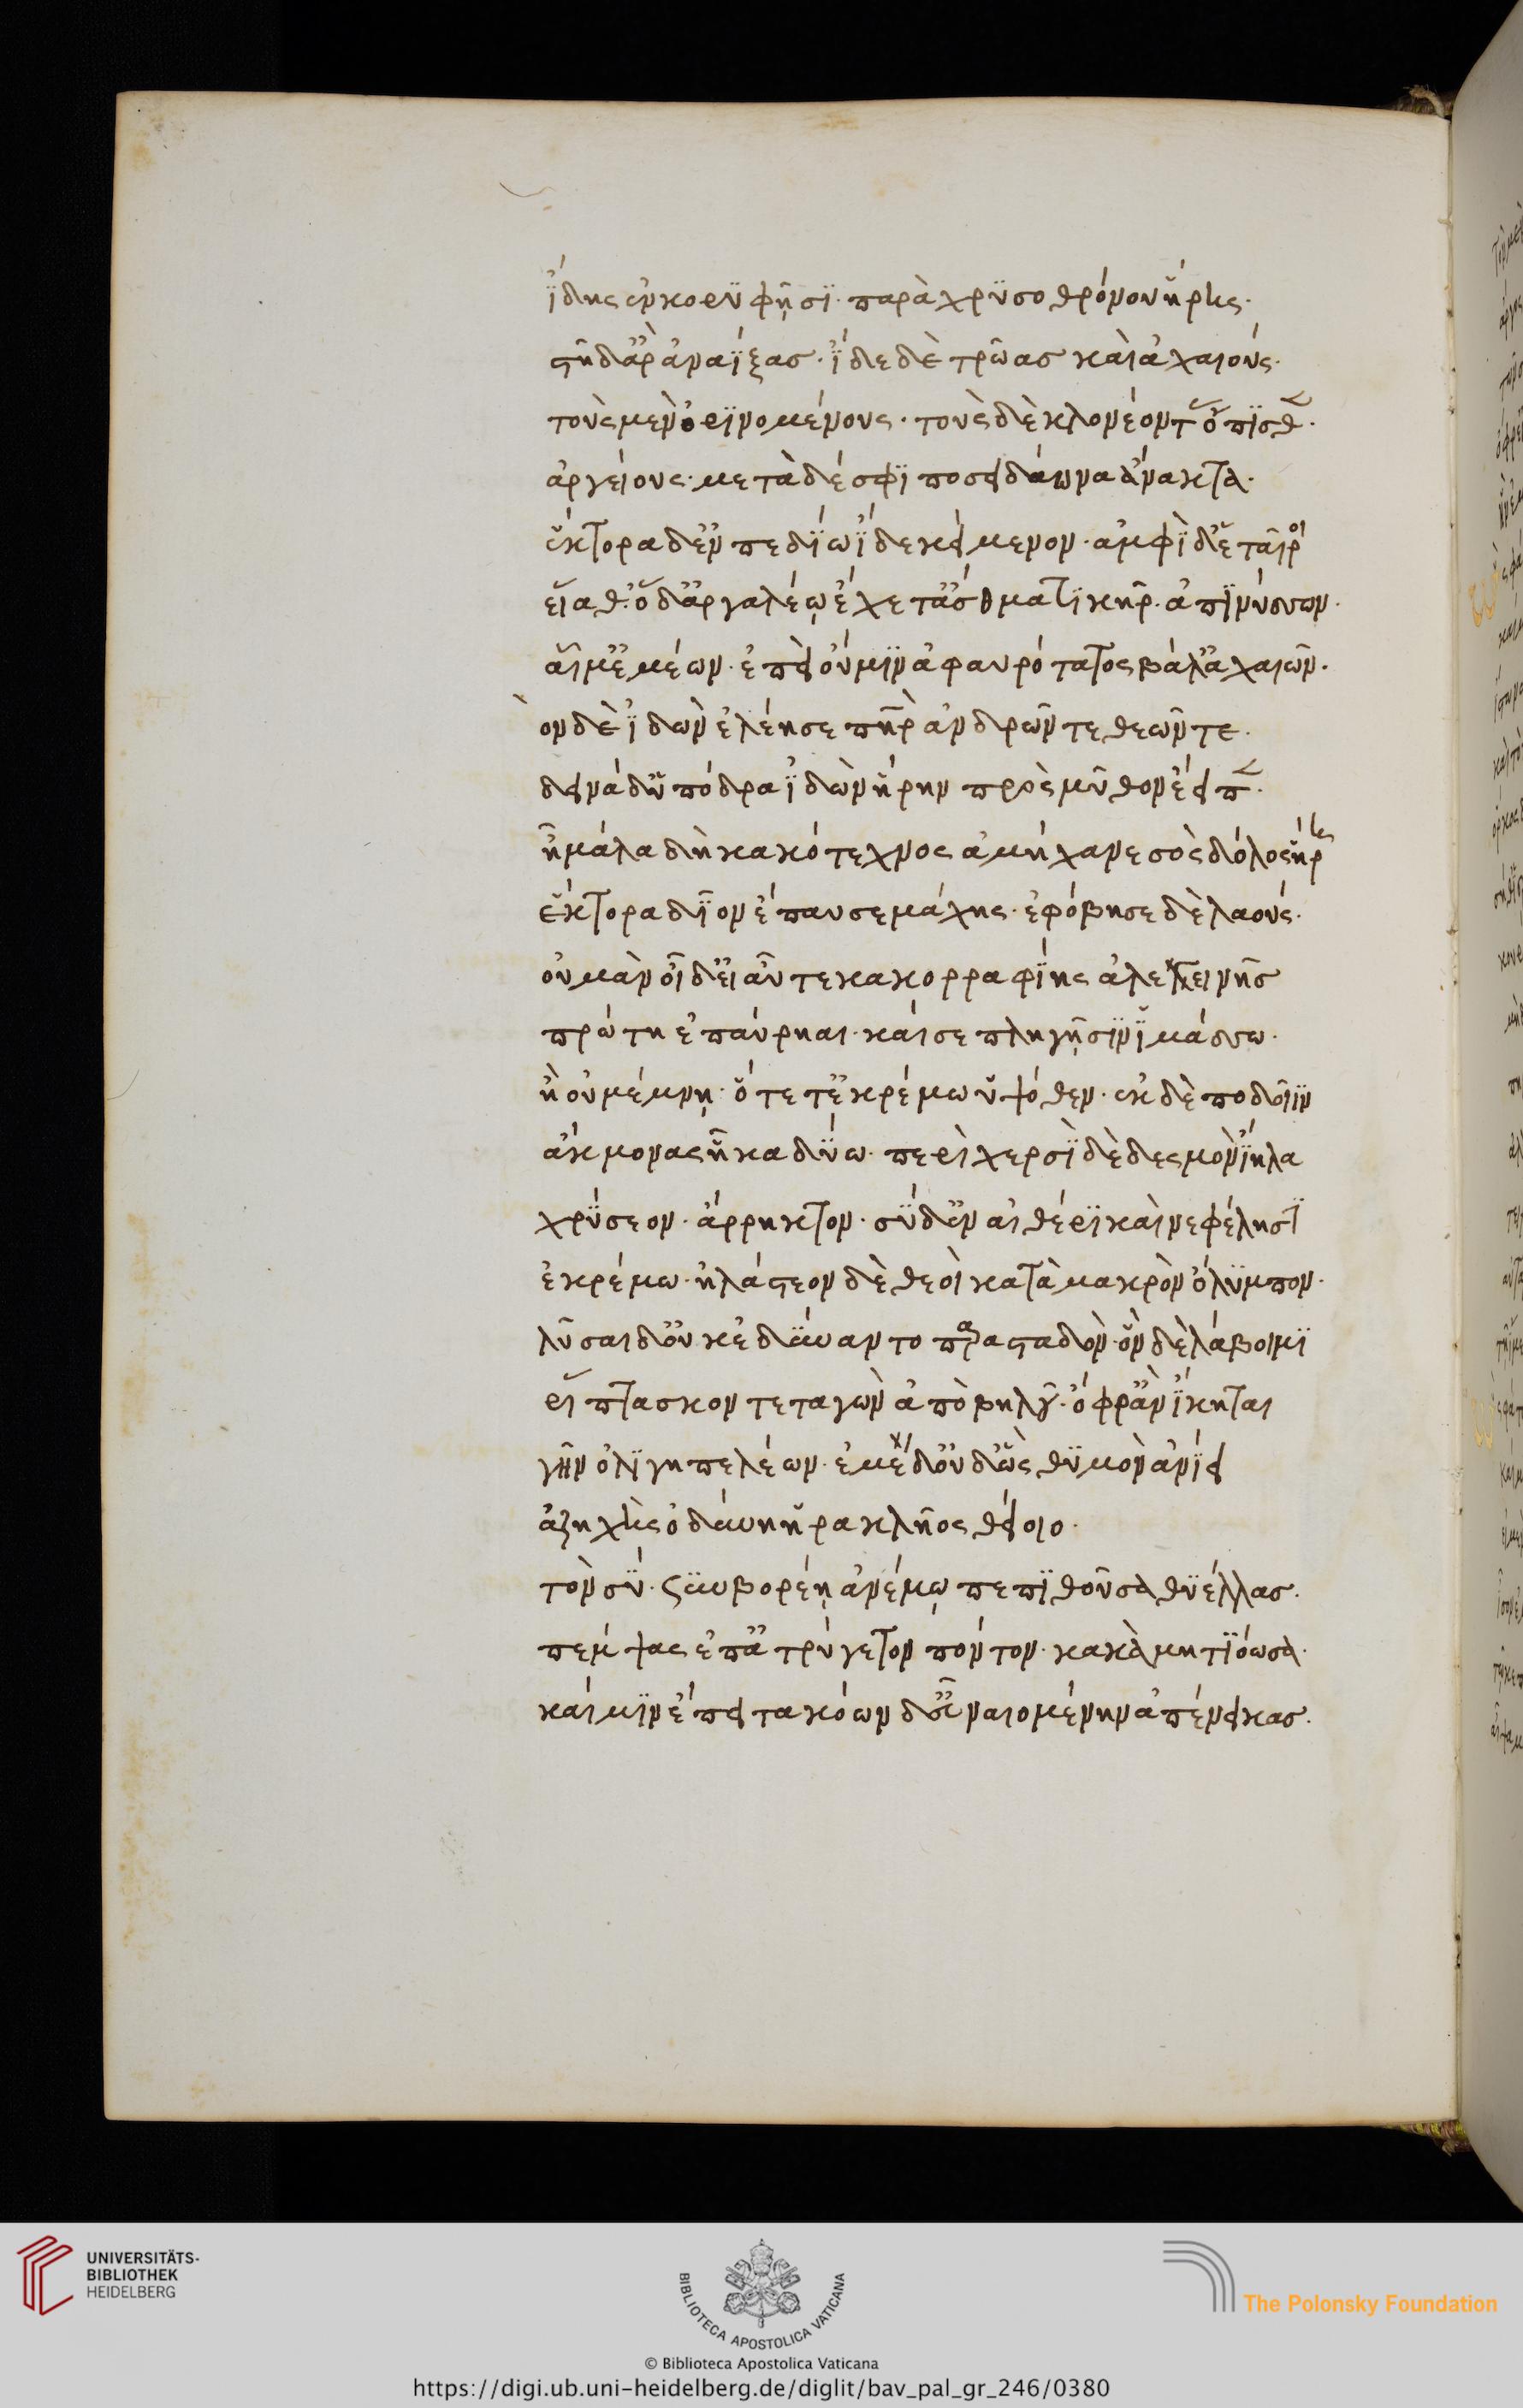 ἴδης ἐν κορυφῇσι· παρὰ χρυσοθρόνου ἥρης·
στῆ δ' ἄρ ἀναΐξας· ἴδε δὲ τρῶας καὶ ἀχαιούς·
τοὺς μὲν ὀρινομένους· τοὺς δὲ κλονέοντ ὄπισθ·
ἀργείους· μετὰ δέ σφι ποσειδάωνα ἄνακτα·
ἕκτορα δ' ἐν πεδίω ἴδε κείμενον· ἀμφὶ δ' ἑταῖροι
εἵαθ· ὁ δ' ἀργαλέῳ ἔχετ' ἄσθματι κῆρ· ἀπινύσσων·
αἷμ' ἐμέων· ἐπεὶ οὔ μιν ἀφαυρότατος βάλ' ἀχαιῶν·
ὸν δὲ ἰδὼν ἐλέησε πὴρ ἀνδρῶν τε θεῶν τε·
δεινὰ δ' ὑπόδρα ἰδὼν ἥρην πρὸς μῦθον ἔειπ·
ἦ μάλα δὴ κακότεχνος ἀμήχανε σὸς δόλος ἥρης
ἕκτορα δῖον ἔπαυσε μάχης· ἐφόβησε δὲ λαούς·
οὐ μὰν οἶδ' εἰ αὖτε κακορραφίης ἀλεγεινῆς
πρώτη ἐπαύρηαι· καί σε πληγῇσιν ἱμάσσω·
ἢ οὐ μέμνῃ· ὅτε τ' ἐκρέμω ὑψόθεν· ἐκ δὲ ποδοῖιν
ἄκμονας ἧκα δύω· περὶ χερσὶ δὲ δεσμὸν ἴηλα
χρύσεον· ἄρρηκτον· σὺ δ' ἐν αἰθέρι καὶ νεφέλησι
ἐκρέμω· ἠλάστεον δὲ θεοὶ κατὰ μακρὸν ὄλυμπον·
λῦσαι δ' οὐκ ἐδύναντο παρασταδὸν· ὃν δὲ λάβοιμι
ῥίπτασκον τεταγὼν ἀπὸ βηλοῦ· ὄφρ' ἂν ἵκηται
γῆν ὀλιγηπελέων· ἐμὲ δ' οὐδ' ὣς θυμὸν ἀνίει
ἀζηχὴς ὀδύνη ἡρακλῆος θείοιο·
τὸν σύ· ξὺν βορέῃ ἀνέμῳ πεπιθοῦσα θυέλλας·
πέμψας ἐπ' ἀτρύγετον πόντον· κακὰ μητιόωσα·
καί μιν ἔπειτα κόων δ' εὖ ναιομένην ἀπένεικας·
UNIVERSITÄTS-
BIBLIOTHEK
HEIDELBERG
BIBLIOTECA APOSTOLICA VATICANA
The Polonsky Foundation
© Biblioteca Apostolica Vaticana
https://digi.ub.uni-heidelberg.de/diglit/bav_pal_gr_246/0380